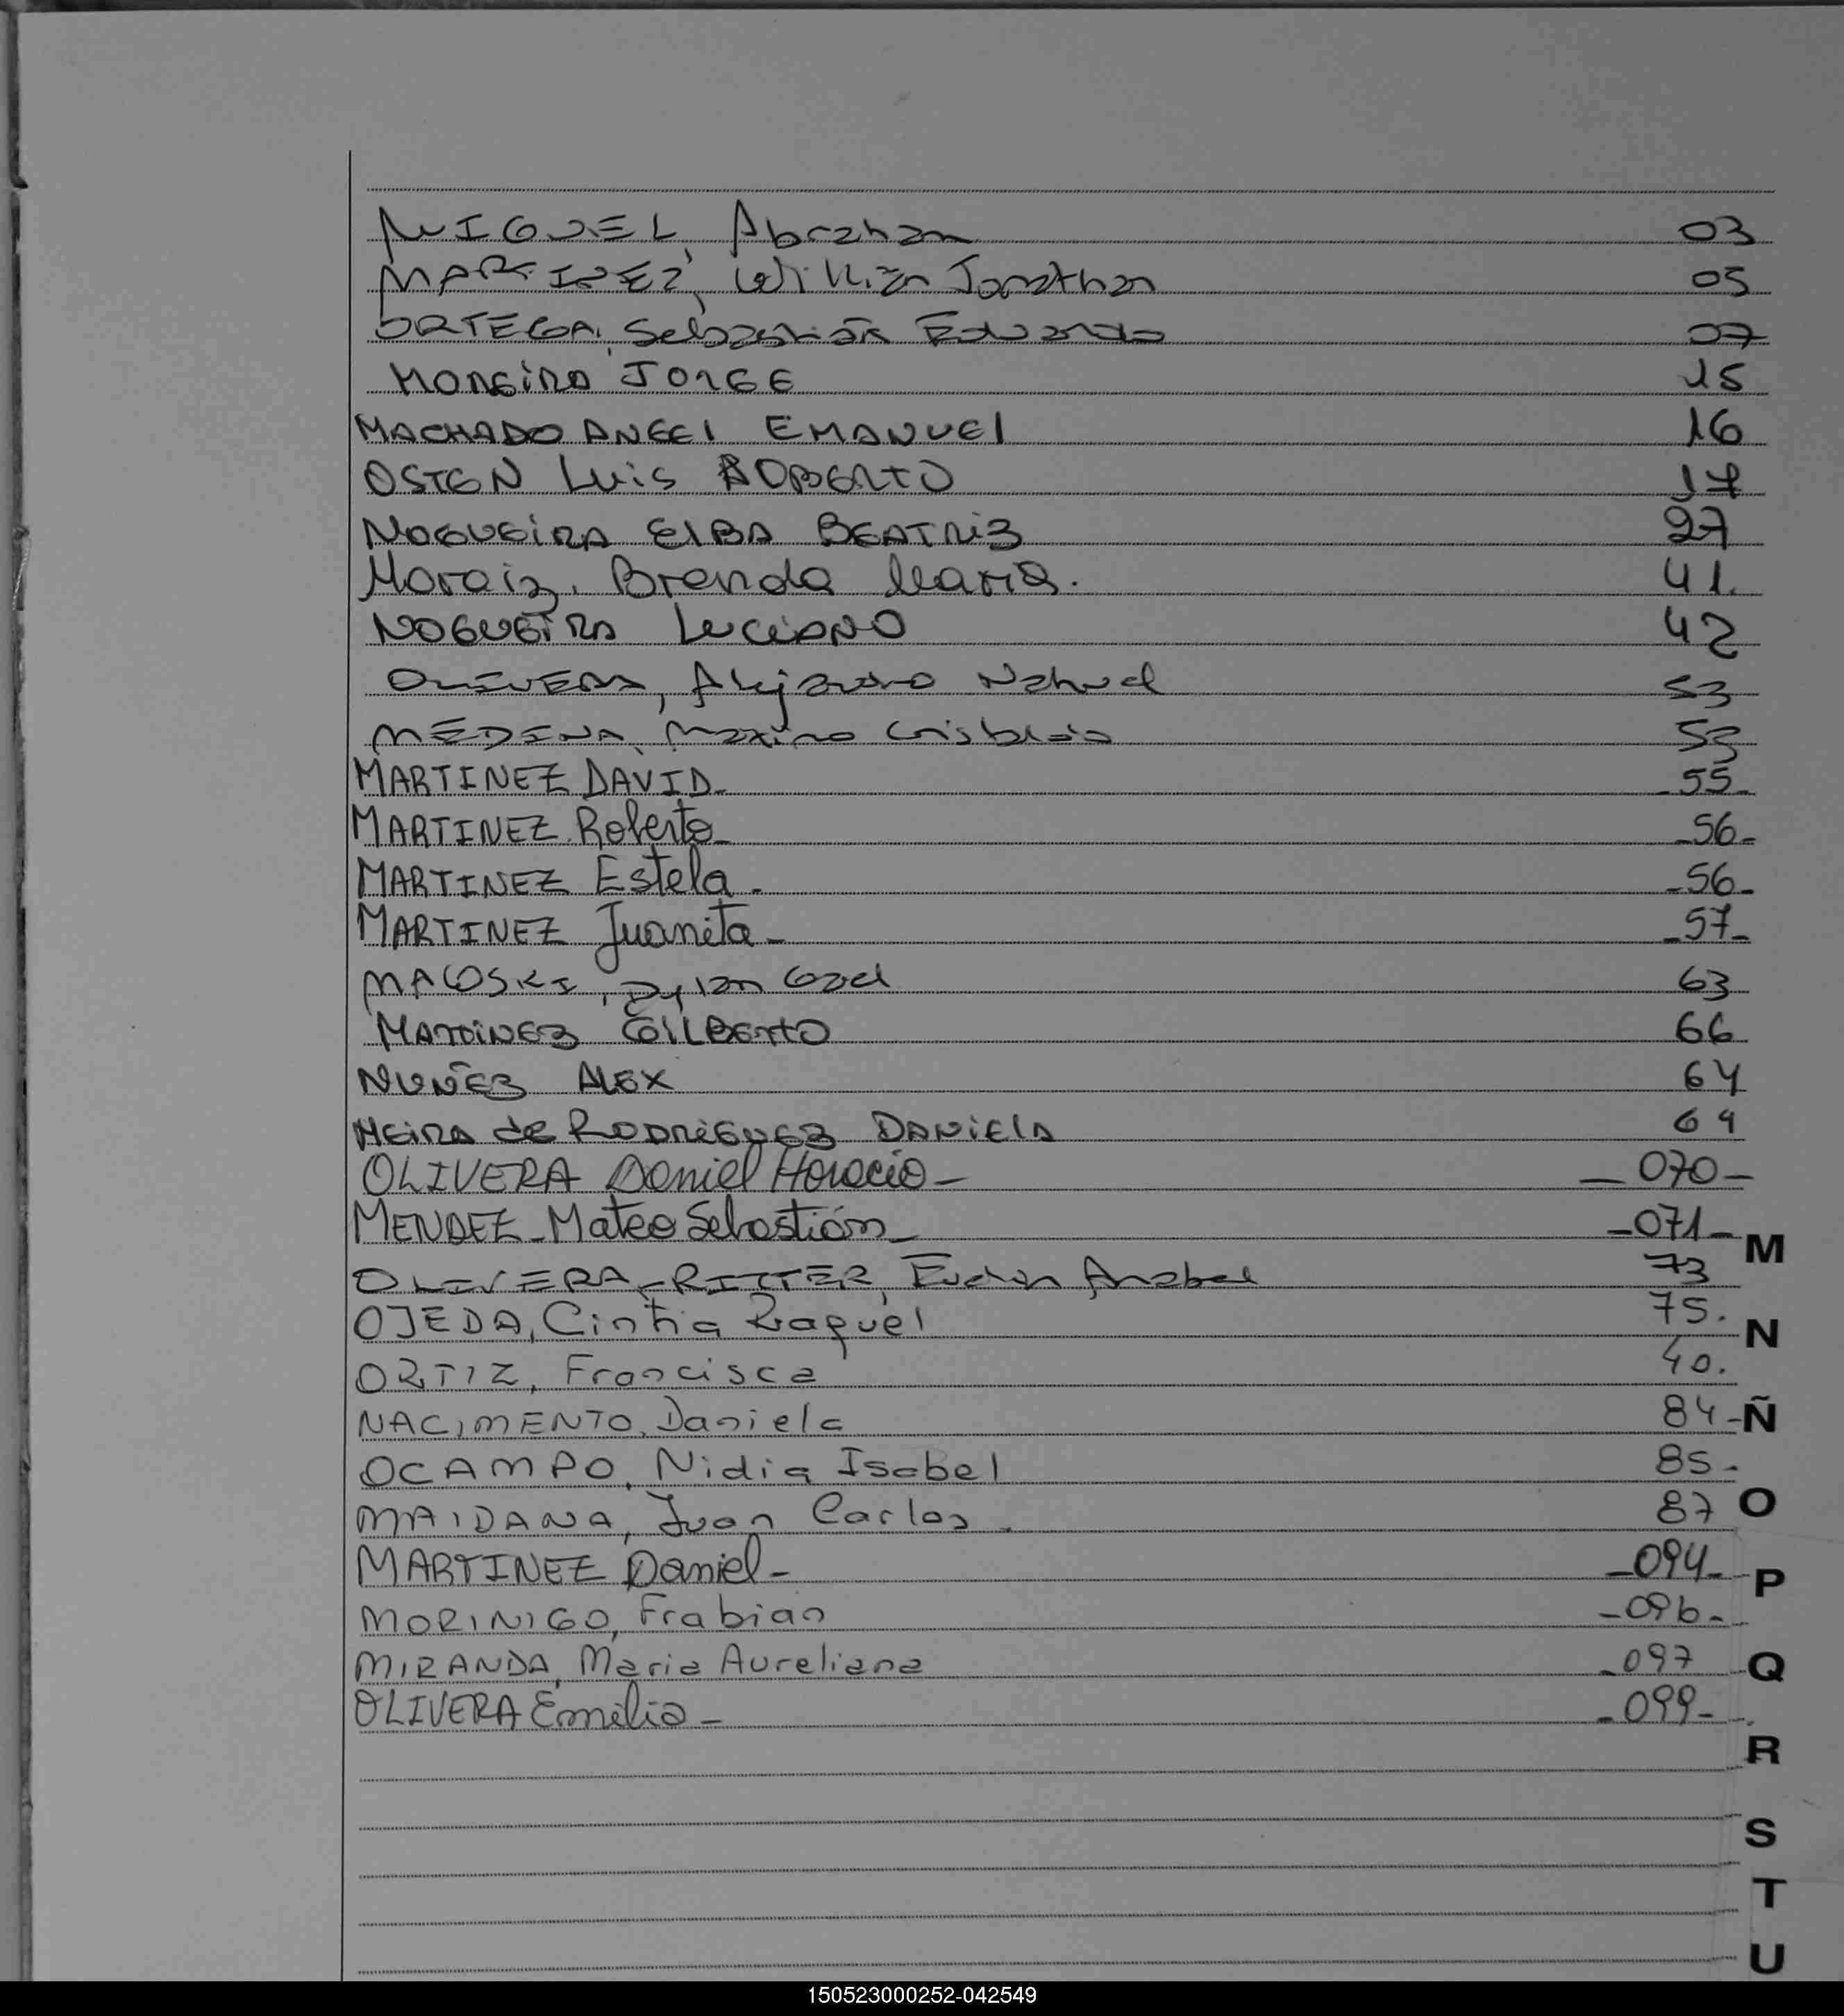 MIGUEL, Abraham 03
MARTINEZ, Willian Jonathan 05
ORTEGA, Sebastián Eduardo 07
MOREIRA JORGE 15
MACHADO ANGEL EMANUEL 16
OSTEN LUIS ROBERTO 17
NOGUEIRA ELBA BEATRIZ 27
Moraiz, Brenda Maria. 41.
NOGUEIRA LUCIANO 42
OLIVERA, Alejandro Nahuel 53
MEDINA, Maximo 53
MARTINEZ DAVID- -55-
MARTINEZ Roberto- -56-
MARTINEZ Estela- -56-
MARTINEZ Juanita- -57-
MACOSKI, Dylan Gael 63
MARTINEZ GILBERTO 66
NUÑEZ ALEX 64
NEIRA de RODRIGUEZ DANIELA 69
OLIVERA Daniel Horacio- -070-
MENDEZ-Mateo Sebastián- -071-
M
OLIVERA-RITTER, Anabel 73
OJEDA, Cintia Raquel 75.
N
ORTIZ, Francisca 40.
NACIMENTO, Daniela 84-
Ñ
OCAMPO, Nidia Isabel 85-
MAIDANA, Juan Carlos. 87
O
MARTINEZ Daniel- -094-
P
MORINIGO, Frabian -096-
MIRANDA, Maria Aureliana -097
Q
OLIVERA Emilio- -099-
R
S
T
U
150523000252-042549